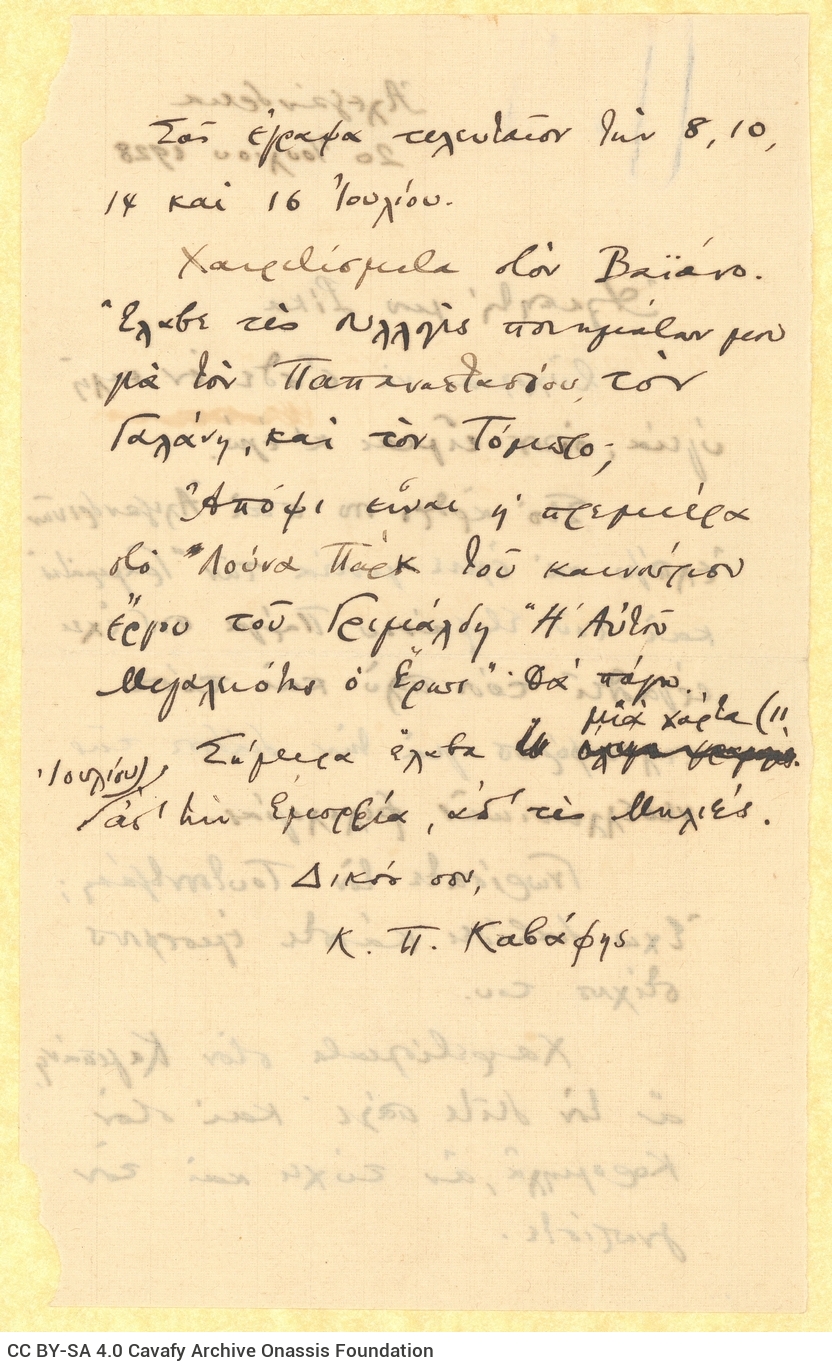 Σας έγραψα τελευταίον την 8, 10,
14 και 16 Ιουλίου.
Χαιρετίσματα στον Βαϊάνο.
Έλαβε τες συλλογές ποιημάτων μου
με τον Παπαναστασίου, τον
Γαλάνη, και τον Τόμπρο;
Απόψι είναι η πρεμιέρα
στο Λούνα Παρκ του καινούριου
έργου του Γριμάλδη "Η Αυτού
Μεγαλειότης ο Έρως". Θα πάγω.
Σήμερα έλαβα μια χάρτα (11
Ιουλίου), απ' την Εμορφιά, απ' τες Μηλιές.
Δικός σου,
Κ. Π. Καβάφης
CC BY-SA 4.0 Cavafy Archive Onassis Foundation